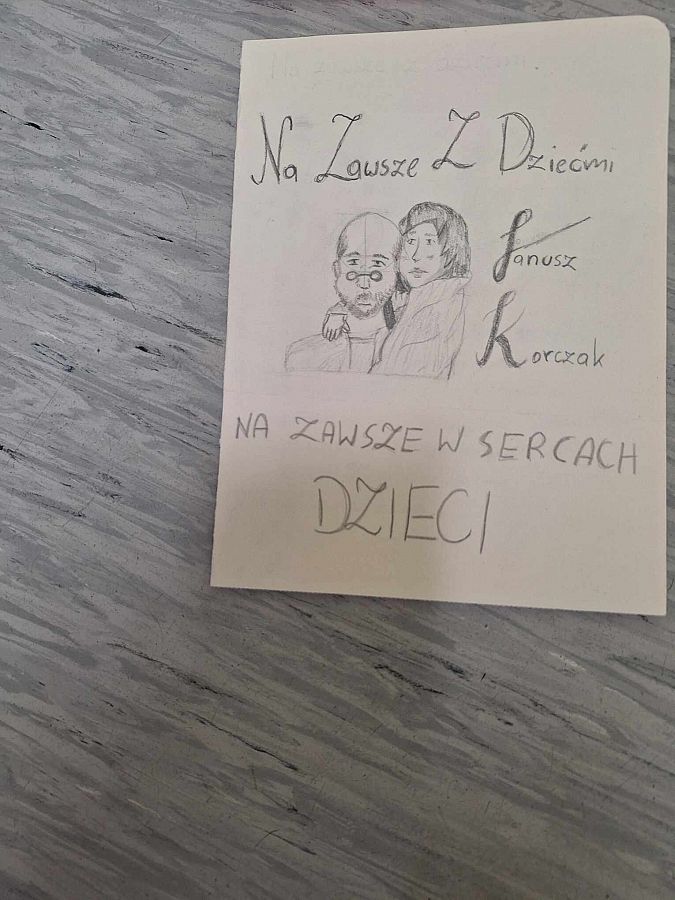 Na Zawsze Z Dziećmi
Janusz
Korczak
NA ZAWSZE W SERCACH
DZIECI